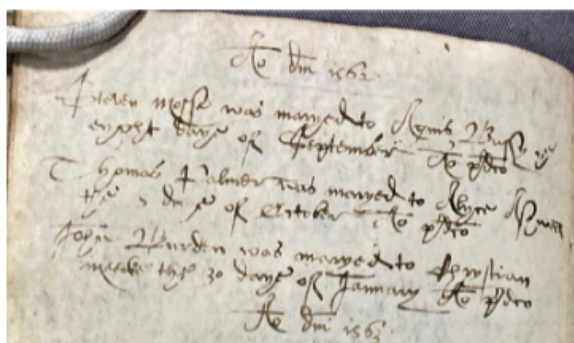 Ao dm 1562
Steven Mosse was maryed to Agnis Bussy ye
eyght daye of September Ao pdco
Thomas Palmer was maryed to Alyce
the 5 daye of October Ao pdco
John Burden was maryed to Chrystian
the 30 daye of January Ao pdco
Ao dm 1563